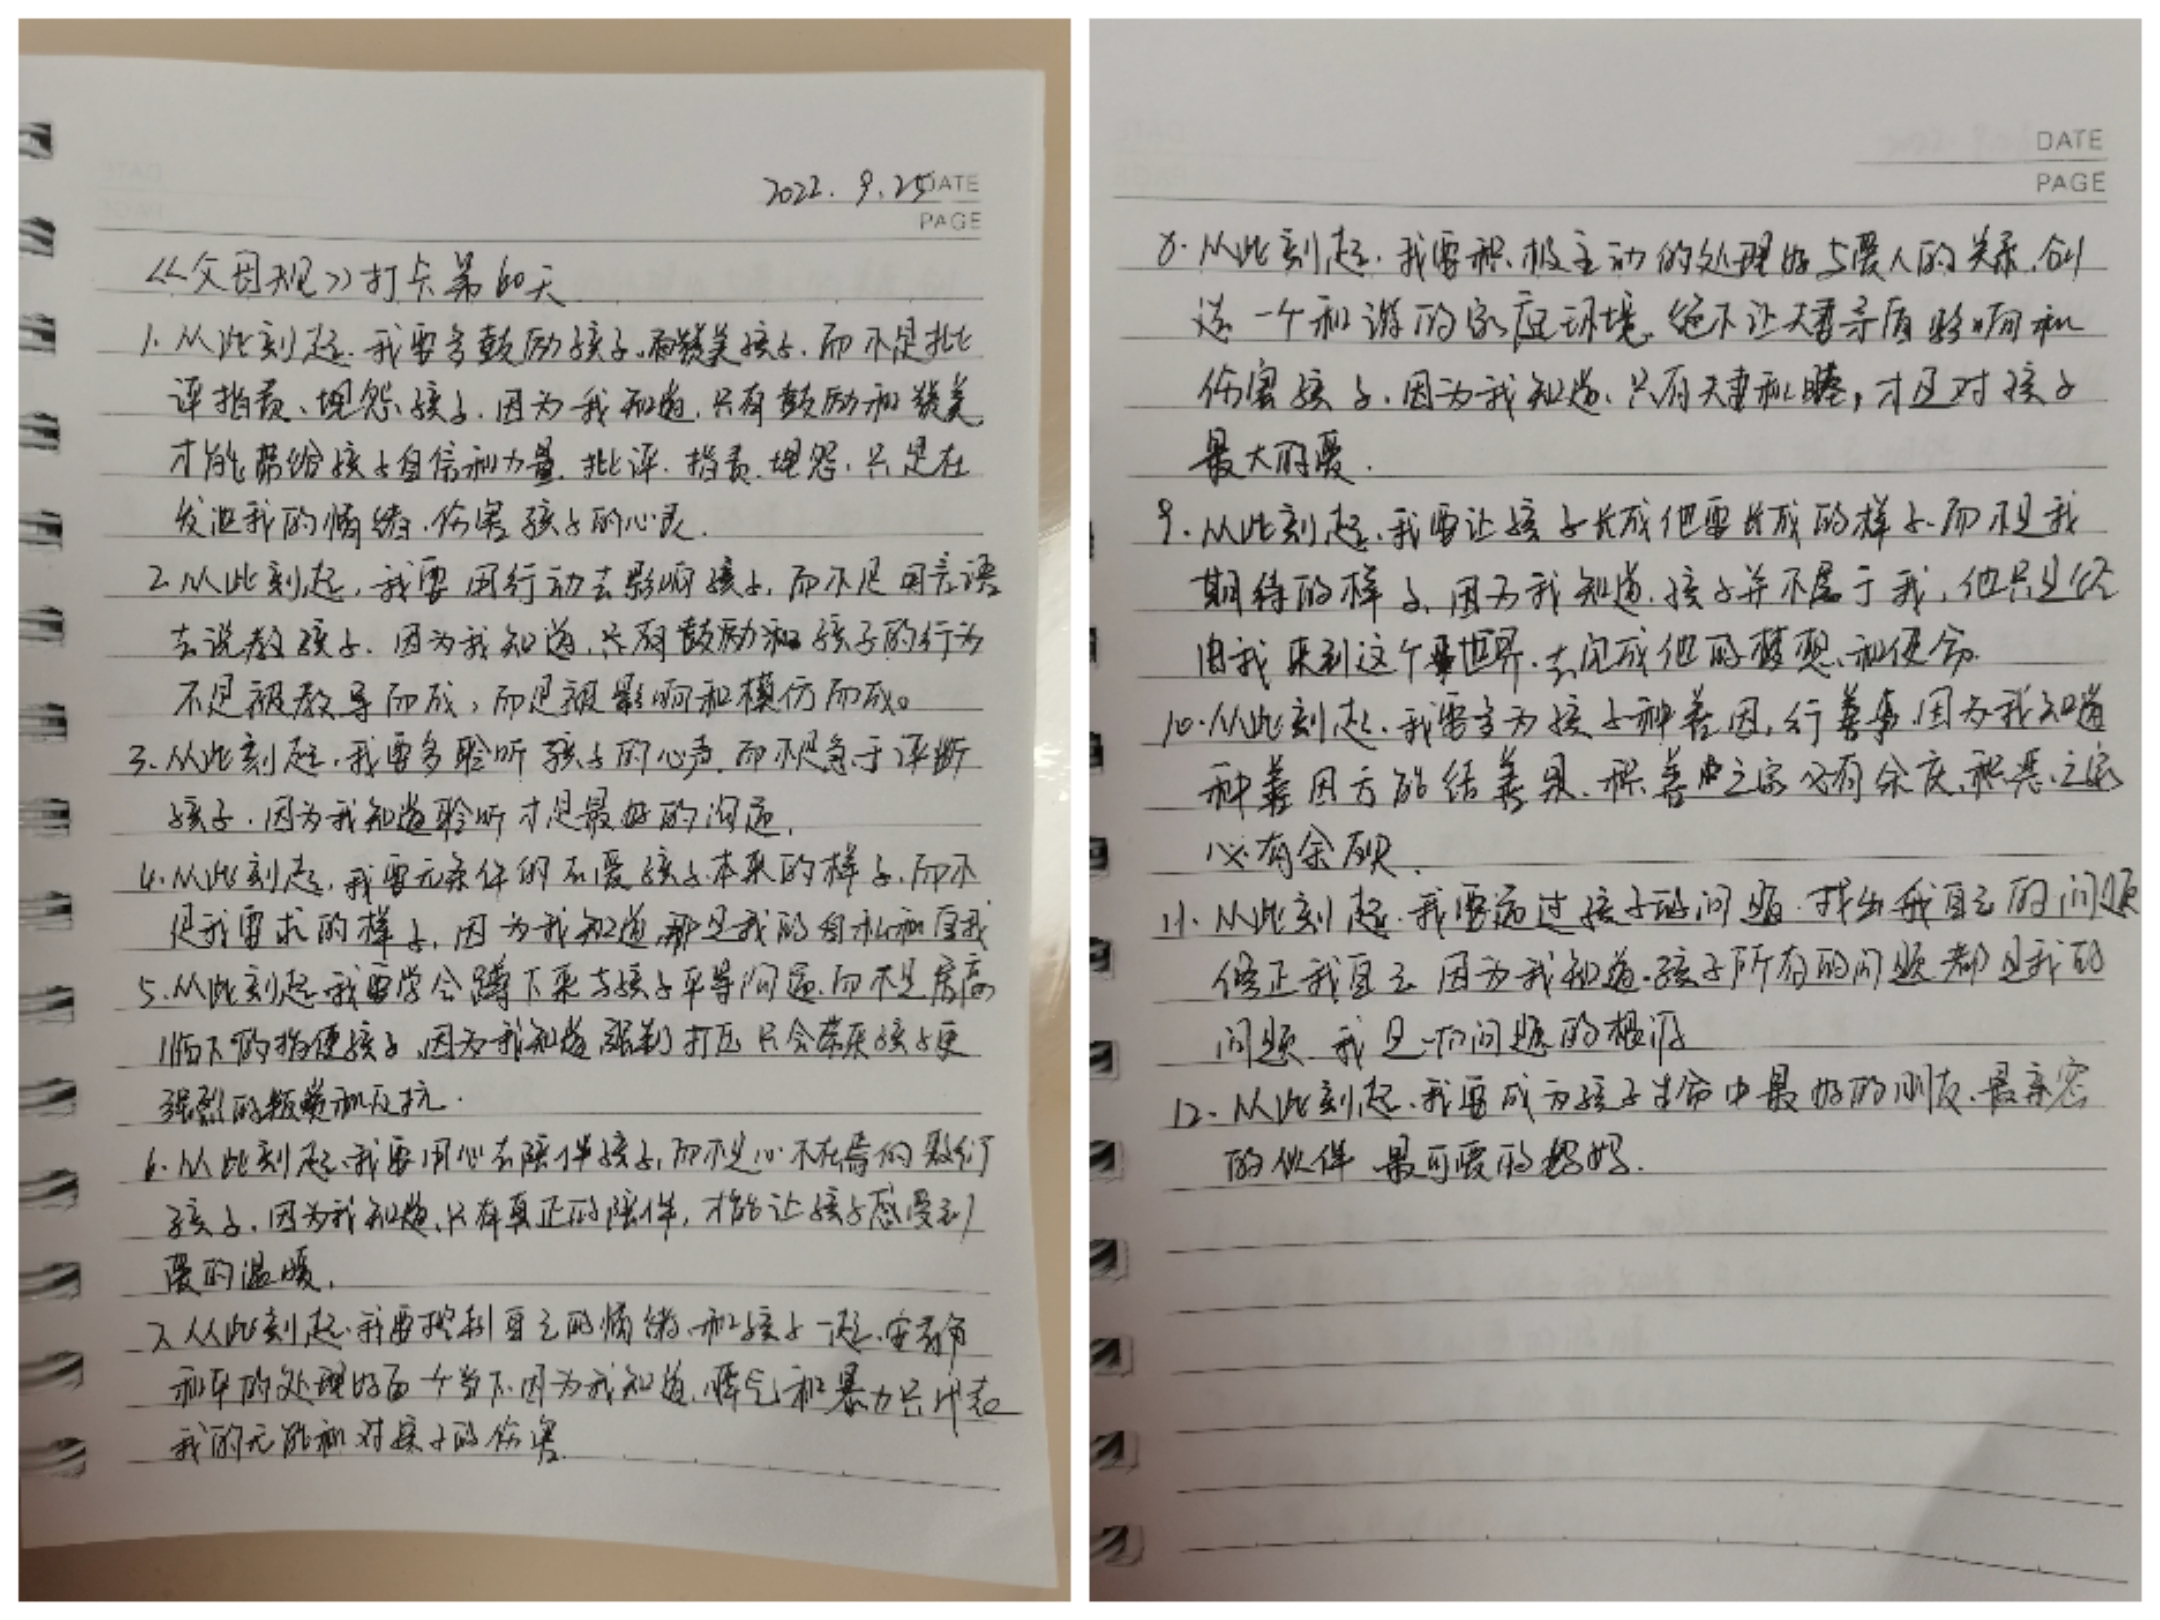 2022.9.25 DATE
PAGE
《父母规》打卡第60天
1.从此刻起.我要多鼓励孩子.赞美孩子.而不是批
评指责、埋怨孩子.因为我知道.只有鼓励和赞美
才能带给孩子自信和力量.批评.指责.埋怨.只是在
发泄我的情绪.伤害孩子的心灵.
2.从此刻起,我要用行动去影响孩子,而不是用言语
去说教孩子.因为我知道,只有鼓励和孩子的行为
不是被教导而成,而是被影响和模仿而成。
3.从此刻起.我要多聆听孩子的心声.而不是急于评断
孩子.因为我知道聆听才是最好的沟通.
4.从此刻起,我要无条件的去爱孩子本来的样子,而不
是我要求的样子,因为我知道那是我的自私和自我
5.从此刻起我要学会蹲下来与孩子平等沟通.而不是居高
临下的指使孩子,因为我知道强制打压只会带来孩子更
强烈的叛逆和反抗.
6.从此刻起,我要用心去陪伴孩子,而不是心不在焉的敷衍
孩子.因为我知道,只有真正的陪伴,才能让孩子感受到
爱的温暖.
7.从此刻起.我要控制自己的情绪.和孩子一起.安静
和平的处理好每一个当下.因为我知道,脾气和暴力只代表
我的无能和对孩子的伤害.
DATE
PAGE
8.从此刻起.我要积极主动的处理好与爱人的关系.创
造一个和谐的家庭环境.绝不让夫妻矛盾影响和
伤害孩子.因为我知道.只有夫妻和睦,才是对孩子
最大的爱.
9.从此刻起.我要让孩子长成他要长成的样子.而不是我
期待的样子,因为我知道.孩子并不属于我,他只是经
由我来到这个世界.去完成他的梦想和使命.
10.从此刻起.我要多为孩子种善因,行善事.因为我知道
种善因方能结善果.积善之家必有余庆.积恶之家
必有余殃.
11.从此刻起.我要通过孩子的问题.找出我自己的问题
修正我自己 因为我知道.孩子所有的问题都是我的
问题 我是一切问题的根源
12.从此刻起.我要成为孩子生命中最好的朋友.最亲密
的伙伴 最可爱的妈妈.